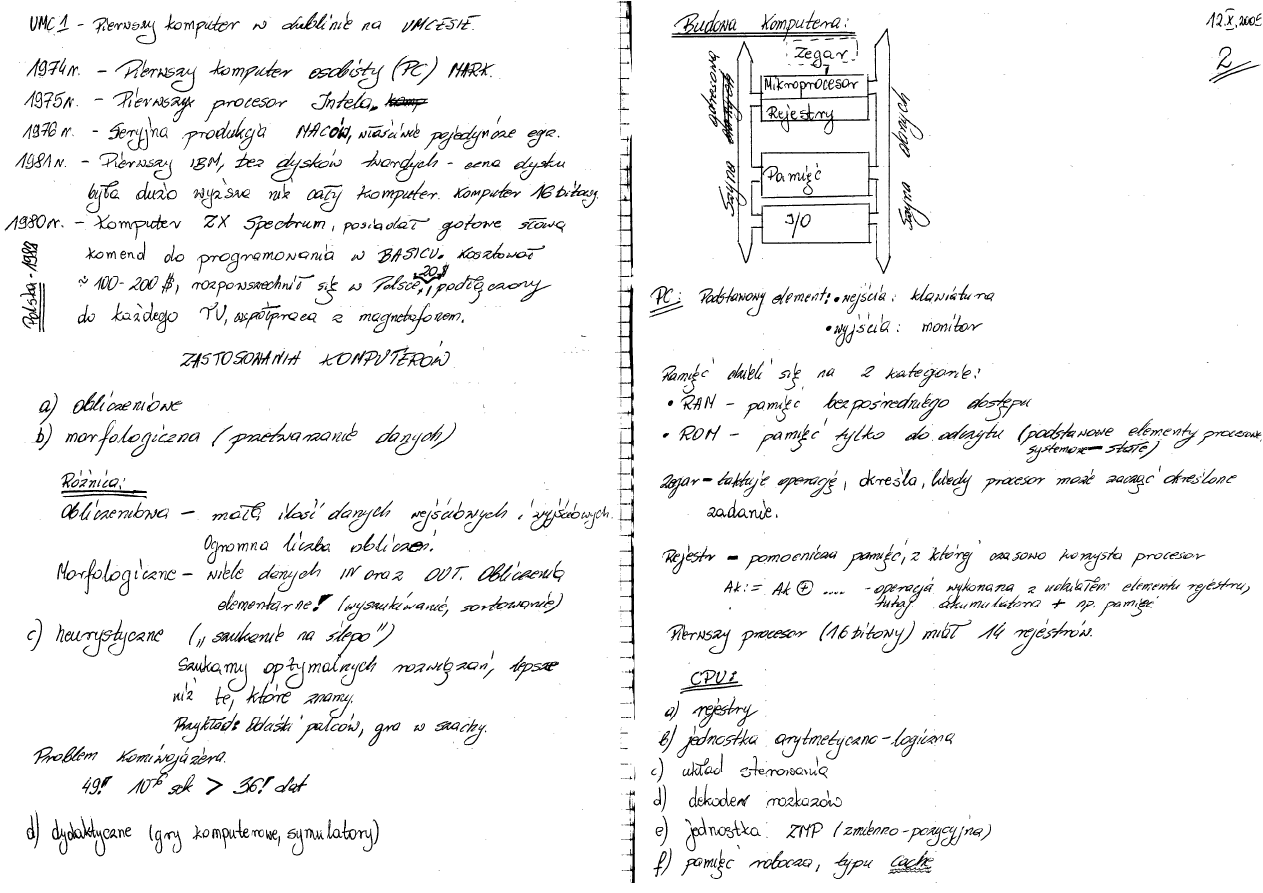 UMC1 - Pierwszy komputer w dublinie na UMCESIE.
1974r. - Pierwszy komputer osobisty (PC) MARK.
1975r. - Pierwszy procesor Intela. komp
1976r. - Seryjna produkcja MACÓW, właściwie pojedyncze egz.
1981r. - Pierwszy IBM, bez dysków twardych - cena dysku
była dużo wyższa niż cały komputer. Komputer 16 bitowy.
1980r. - Komputer ZX Spectrum, posiadał gotowe słowa
komend do programowania w BASICU. Kosztował
~ 100-200 $, rozpowszechnił się w Polsce, 20$ podłączony
do każdego TV, współpraca z magnetofonem.
Polska - 1988
ZASTOSOWANIA KOMPUTERÓW
a) obliczeniowe
b) morfologiczna (przetwarzanie danych)
Różnica:
Obliczeniowa - mała ilość danych wejściowych i wyjściowych.
Ogromna liczba obliczeń.
Morfologiczne - wiele danych IN oraz OUT. Obliczenia
elementarne! (wyszukiwanie, sortowanie)
c) heurystyczne („szukanie na ślepo")
Szukamy optymalnych rozwiązań, lepsze
niż te, które znamy.
Przykład: palców, gra w szachy.
Problem Komiwojażera.
49! 10⁻⁶ sek > 36! lat
d) dydaktyczne (gry komputerowe, symulatory)
12.X.
2
Budowa Komputera:
Zegar
Mikroprocesor
Rejestry
Pamięć
I/O
Szyna adresowa
danych
Szyna danych
PC: Podstawowy element: • wejścia: klawiatura
• wyjścia: monitor
Pamięć dzieli się na 2 kategorie:
• RAM - pamięć bezpośredniego dostępu
• ROM - pamięć tylko do odczytu (podstawowe elementy procesowe,
systemowe - stałe)
Zegar - taktuje operację, określa, kiedy procesor może zacząć określone
zadanie.
Rejestr - pomocnicza pamięć, z której czasowo korzysta procesor
Ak := Ak ⊕ .... - operacja wykonana z udziałem elementu rejestru,
tutaj akumulatora + np. pamięć
Pierwszy procesor (16 bitowy) miał 14 rejestrów.
CPU:
a) rejestry
b) jednostka arytmetyczno-logiczna
c) układ sterowania
d) dekoder rozkazów
e) jednostka ZMP (zmienno-pozycyjna)
f) pamięć robocza, typu cache